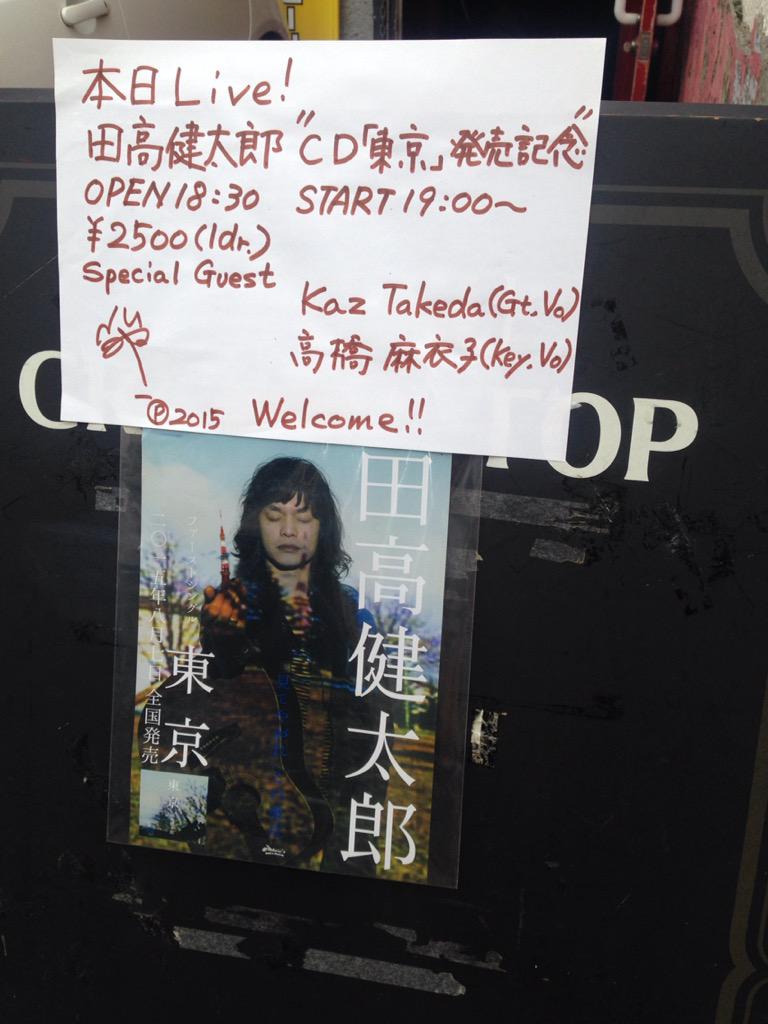 本日Live!
田高健太郎 "CD「東京」発売記念"
OPEN 18:30 START 19:00～
¥2500(1dr.)
Special Guest
Kaz Takeda(Gt.Vo)
高橋 麻衣子(Key.Vo)
℗2015 Welcome!!
TOP
田高健太郎
ファーストシングル
東京
二〇一五年八月七日全国発売